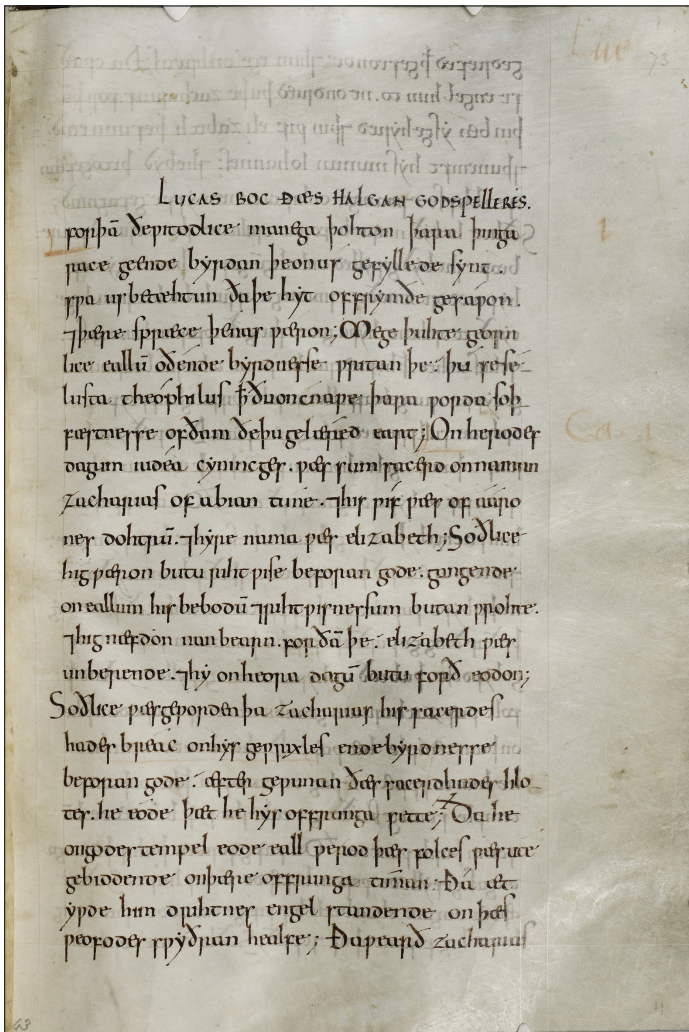 LUCAS BOC ÐÆS HALGAN GODSPELLERES.
forþā ðeƿitodlice manega þohton þara þinga
race geendebyrdan þe on us gefyllede synt.
sƿa us betæhtun ða þe hyt of frymðe gesaƿon.
⁊ þære spræce þenas ƿæron; Me geþuhte georn
lice eallū oð ende byrdnesse ƿritan þe. þu se se
lusta theophilus þ̄ ðu oncnaƿe þara ƿorda soþ
fæstnesse of ðam ðe þu gelæred eart; On herodes
dagum iudea cyninges. ƿæs sum sacerd on naman
zacharias of abian tune. ⁊ his ƿif ƿæs of aaro
nes dohtrū. ⁊ hyre nama ƿæs elizabeth; Soðlice
hig ƿæron butu riht ƿise beforan gode. gangende
on eallum his bebodū ⁊ rihtƿisnessum butan ƿrohte.
⁊ hig næfdon nan bearn. forðā þe. elizabeth ƿæs
unberende. ⁊ hy on heora dagū butu forð eodon;
Soðlice ƿæs geƿorden þa zacharias his sacerdes
hades breac on hys geƿrixles endebyrdnesse
beforan gode. æfter geƿunan ðæs sacerdhades hlo
tes. he eode þæt he hys offrunga sette; Ða he
on godes tempel eode eall ƿerod þæs folces ƿæs ute
gebiddende on þære offrunga timan. Ða æt
yƿde him drihtnes engel standende on þæs
ƿeofodes sƿyðran healfe; Ða ƿearð zacharias
73
1
Ca. 1
43